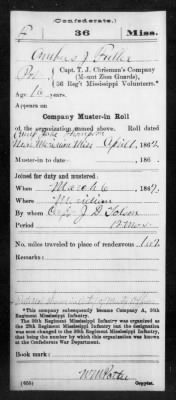 (Confederate.)
36 Miss.
J Fuller
Pvt, Capt. T. J. Chrisman's Company
(Mount Zion Guards),
36 Reg't Mississippi Volunteers.*
Age 16 years.
Appears on
Company Muster-in Roll
of the organization named above. Roll dated
Near Meridian Miss April, 1862
Muster-in to date , 186 .
Joined for duty and mustered:
When March 6, 1862.
Where Meridian
By whom Capt J D
Period 12 mos.
No. miles traveled to place of rendezvous
Remarks:
*This company subsequently became Company A, 36th
Regiment Mississippi Infantry.
Regiment Mississippi Infantry but the designation
was changed to the 36th Regiment Mississippi Infantry,
that being the number by which this organization was
known at the Confederate War Department.
Book mark:
(655) Copyist.